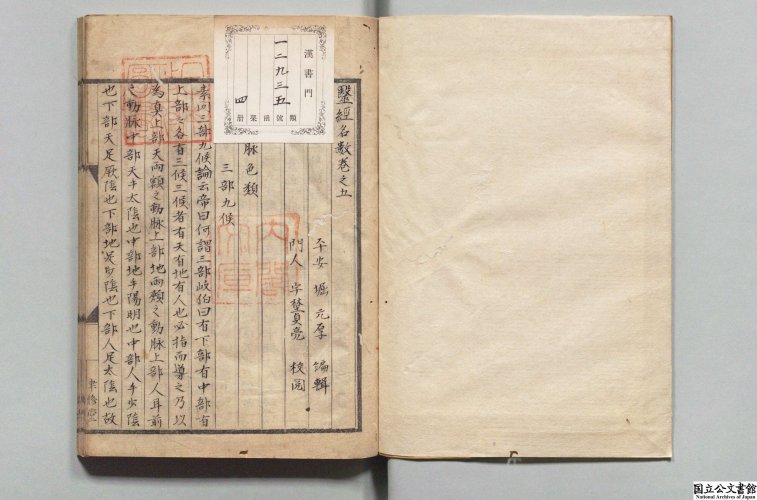 醫經名數卷之五
平安 堀元厚 編輯
門人 宇埜貞亮 校閲
脉色類
三部九候
素問三部九候論云帝曰何謂三部岐伯曰有下部有中部有
上部部各有三候三候者有天有地有人也必指而導之乃以
為真上部天兩額之動脉上部地兩頰之動脉上部人耳前
之動脉中部天手太陰也中部地手陽明也中部人手少陰
也下部天足厥陰也下部地足少陰也下部人足太陰也故
漢書門
一二九三五
類 號 函 架 冊
四
内閣文庫
国立公文書館
National Archives of Japan